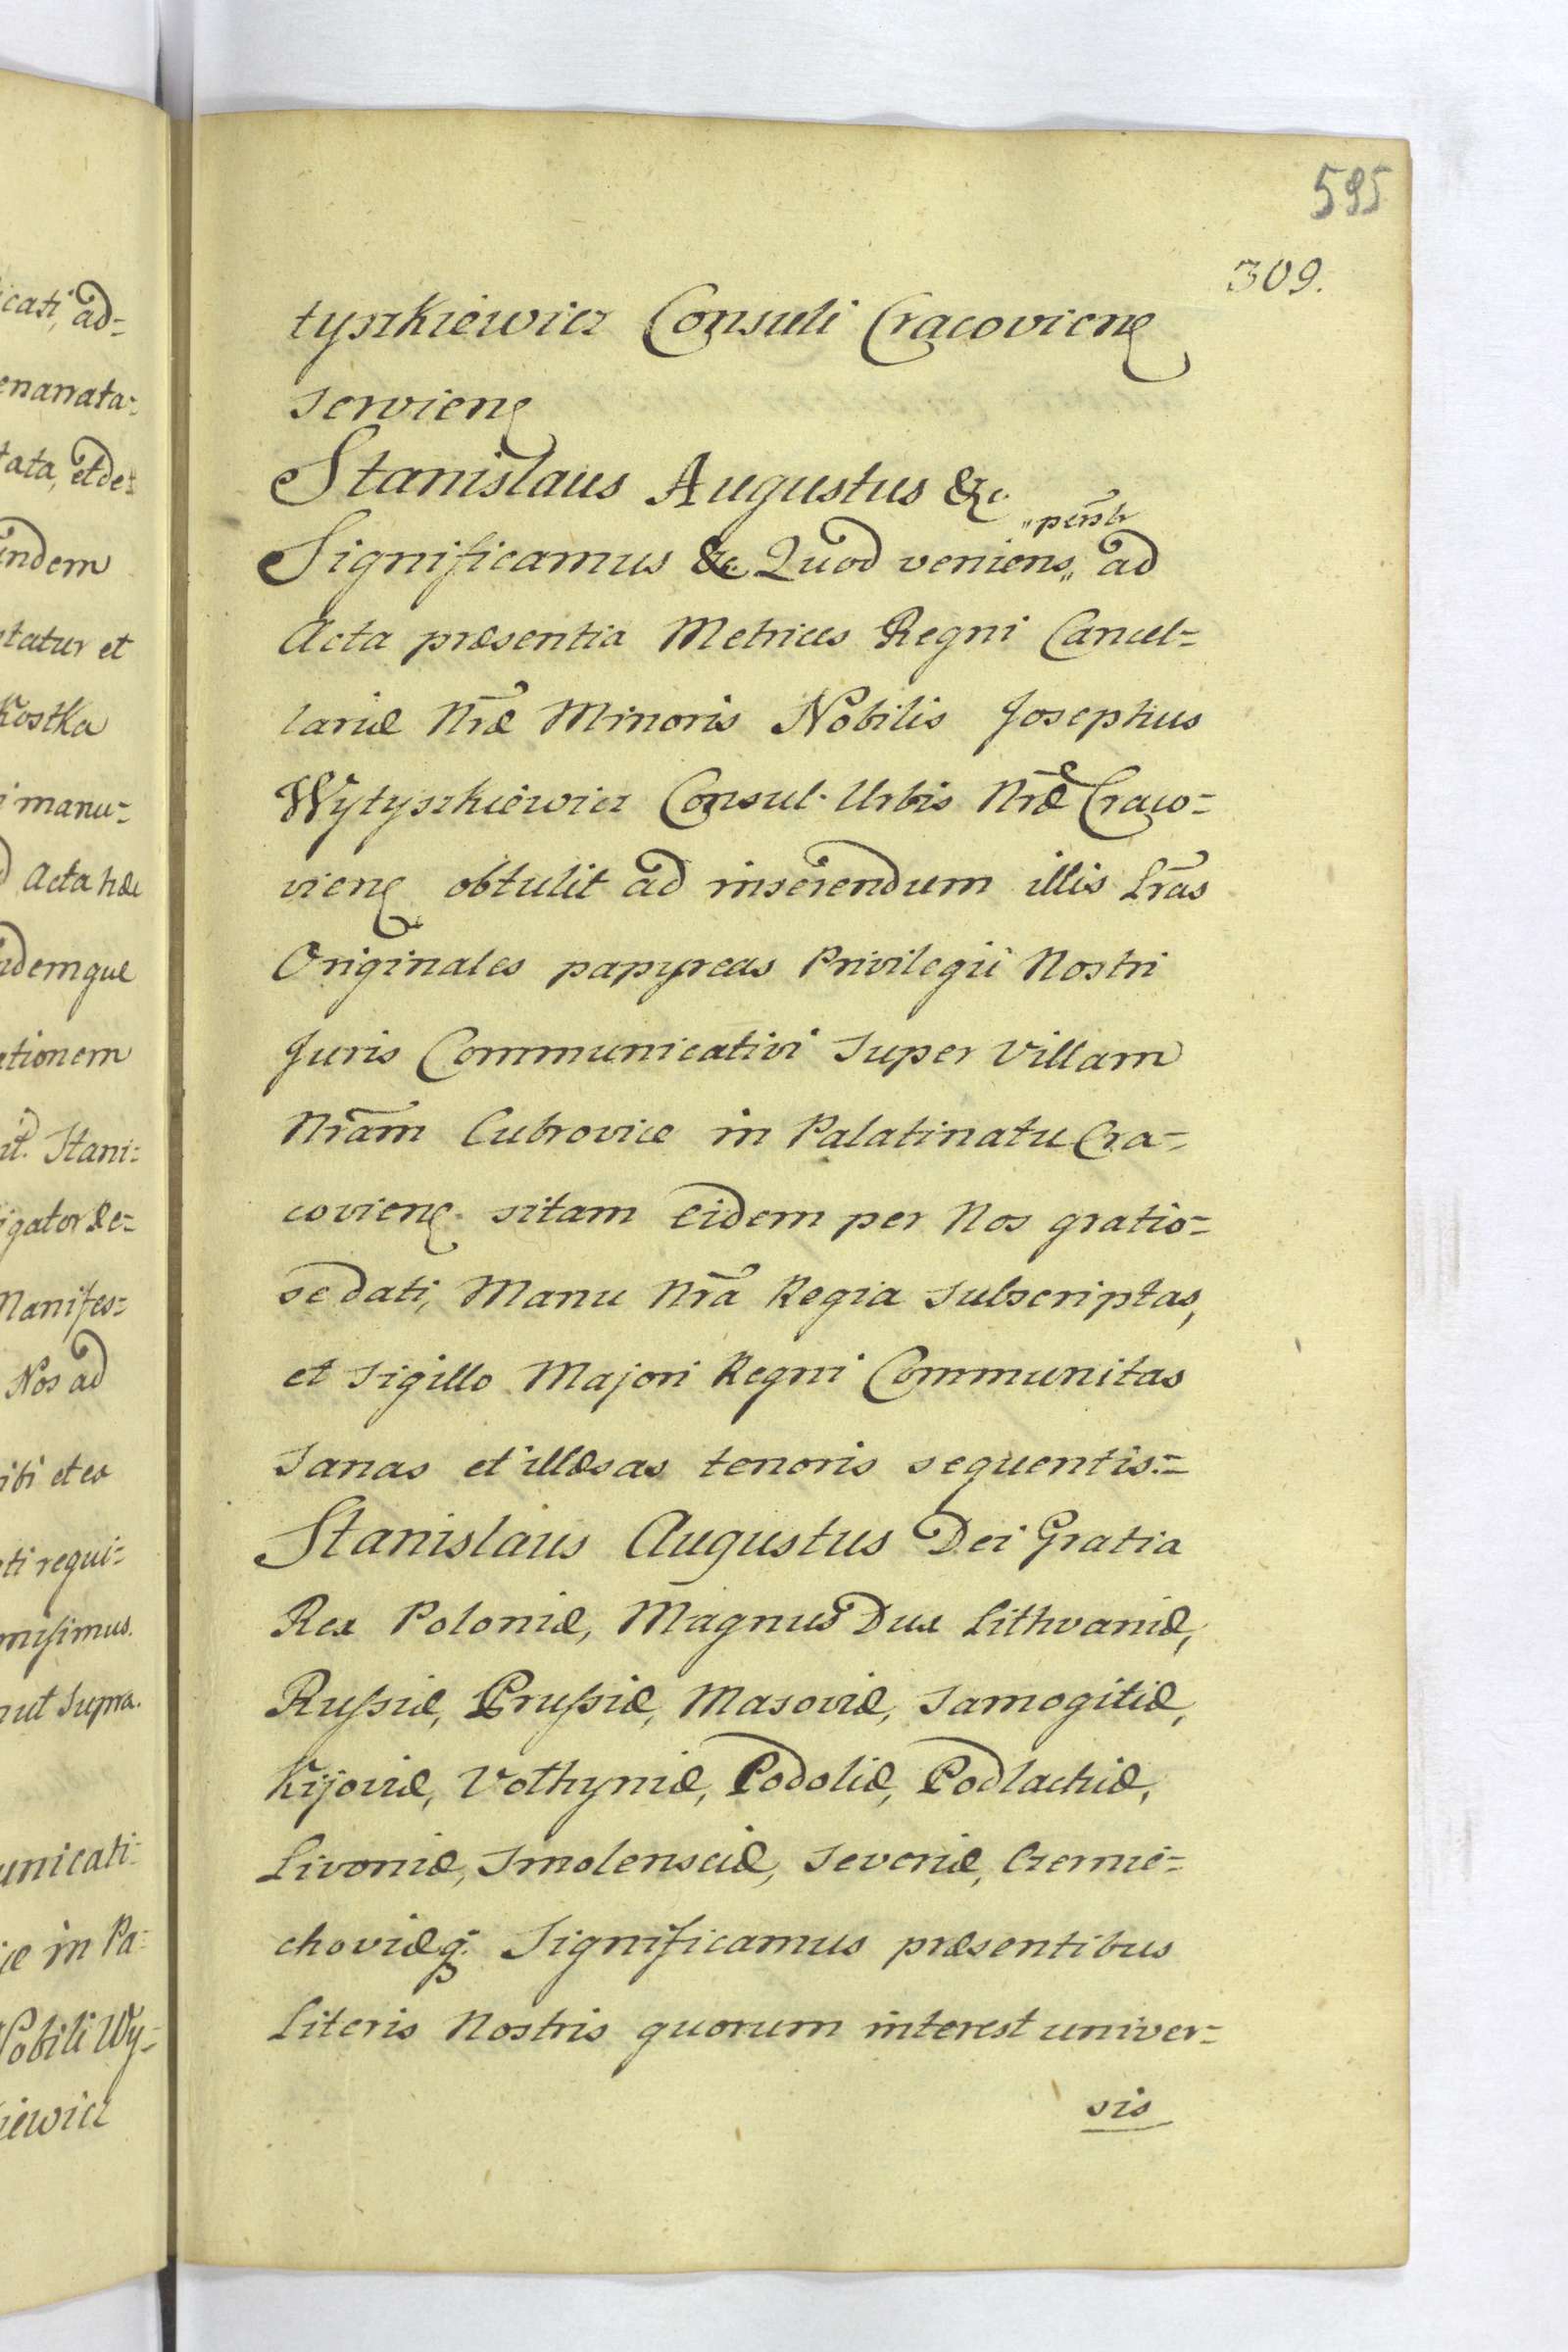 595
309.
tyszkiewicz Consuli Cracovien
servien
Stanislaus Augustus &c.
Significamus &c. Quod veniens „persōlr ad
Acta præsentia Metrices Regni Cancel=
lariæ Nr̄æ Minoris Nobilis Josephus
Wytyszkiewicz Consul Urbis Nr̄æ Craco=
vien obtulit ad inserendum illis Lr̄as
Originales papyreas Privilegii Nostri
Juris Communicativi Super Villam
Nr̄am Cubrovice in Palatinatu Cra=
covien sitam eidem per Nos gratio=
se dati, Manu Nr̄a Regia Subscriptas,
et Sigillo Majori Regni Communitas
Sanas et illæsas tenoris sequentis:=
Stanislaus Augustus Dei Gratia
Rex Poloniæ, Magnus Dux Lithvaniæ,
Rußiæ, Prußiæ, Masoviæ, Samogitiæ,
Kijoviæ, Volhyniæ, Podoliæ, Podlachiæ,
Livoniæ, Smolensciæ, Severiæ, Czernie=
choviæq; Significamus præsentibus
Literis Nostris quorum interest univer=
sis
icati, ad=
enarrata=
tata, et de=
undem
tatur et
Kostka
i manu=
Acta hæc
demque
ationem
it. Stani=
igator de=
Manifes=
Nos ad
ibi et ea
ti requi=
misimus.
ut Supra.
unicati=
ce in Pa=
Nobili Wy=
kiewicz